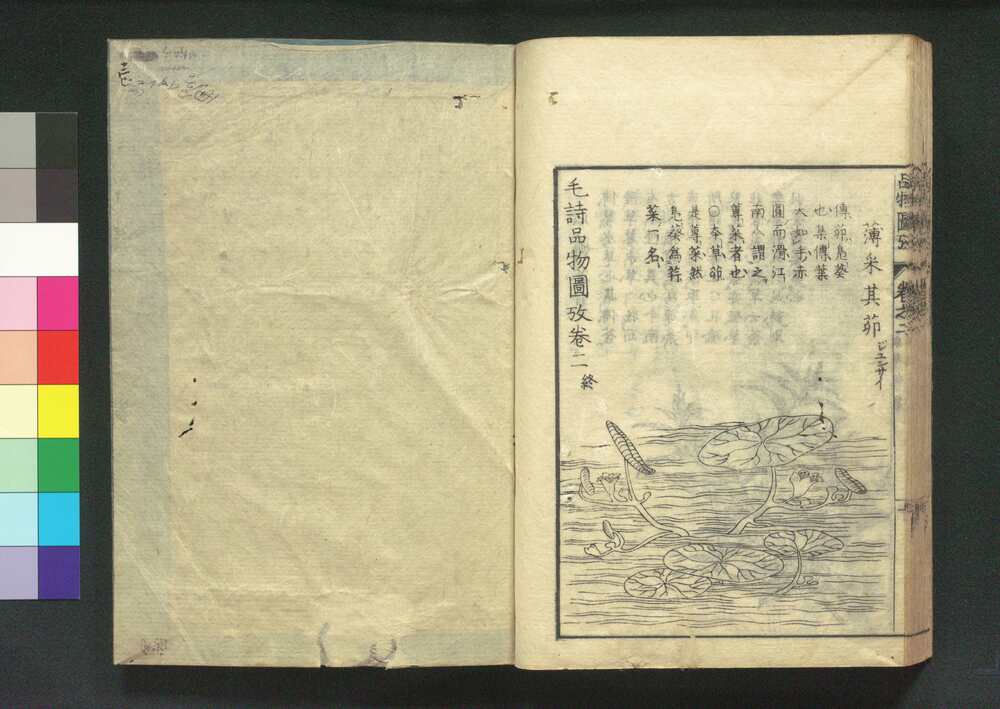 品物圖攷 卷之二
薄采其茆
ジユンサイ
傳茆鳧葵
也集傳葉
大如手赤
圓而滑江
南人謂之
蓴菜者也
○本草茆
是蓴菜然
鳧葵為荇
菜一名
毛詩品物圖攷卷二終